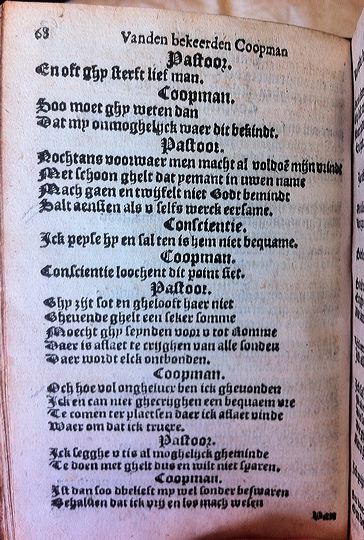 68
Vanden bekeerden Coopman
Pastoor.
En oft ghy sterft lief man.
Coopman.
Soo moet ghy weten dan
Dat my onmoghelijck waer dit bekindt.
Pastoor.
Nochtans voorwaer men macht al voldoē mijn vrindt
Met schoon ghelt dat yemant in uwen name
Mach gaen en twijfelt niet Godt bemindt
Salt aensien als u selfs werck eersame.
Conscientie.
Ick peyse hy en sal ten is hem niet bequame.
Coopman.
Conscientie loochent dit point siet.
Pastoor.
Ghy zijt sot en ghelooft haer niet
Ghevende ghelt een seker somme
Moecht ghy seynden voor u tot Romme
Daer is aflaet te crijghen van alle sonden
Daer wordt elck ontbonden.
Coopman.
Och hoe vol ongheluer ben ick ghevonden
Ick en can niet ghecrijghen een bequaem ure
Te comen ter plaetsen daer ick aflaet vinde
Waer om dat ick trucre.
Pastoor.
Ick segghe u tis al moghelijck gheminde
Te doen met ghelt dus en wilt niet sparen.
Coopman.
Ist dan soo dbelieft my wel sonder beswaren
Behalften dat ick vry en los mach wesen
Van